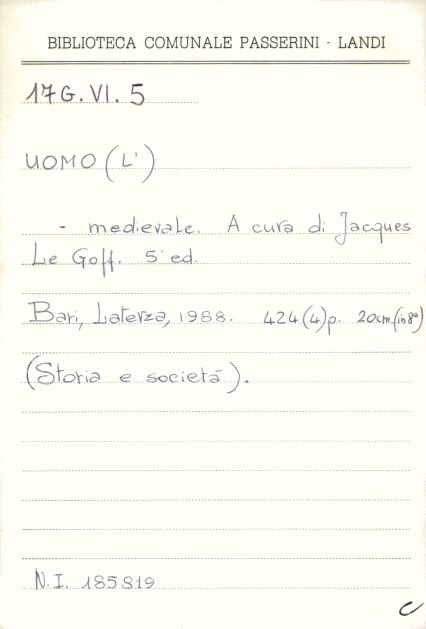 BIBLIOTECA COMUNALE PASSERINI - LANDI
17G. VI. 5
UOMO (L')
- medievale. A cura di Jacques
Le Goff. 5ª ed.
Bari, Laterza, 1988. 424(4)p. 20cm.(in8º)
(Storia e società).
N.I. 185819
C